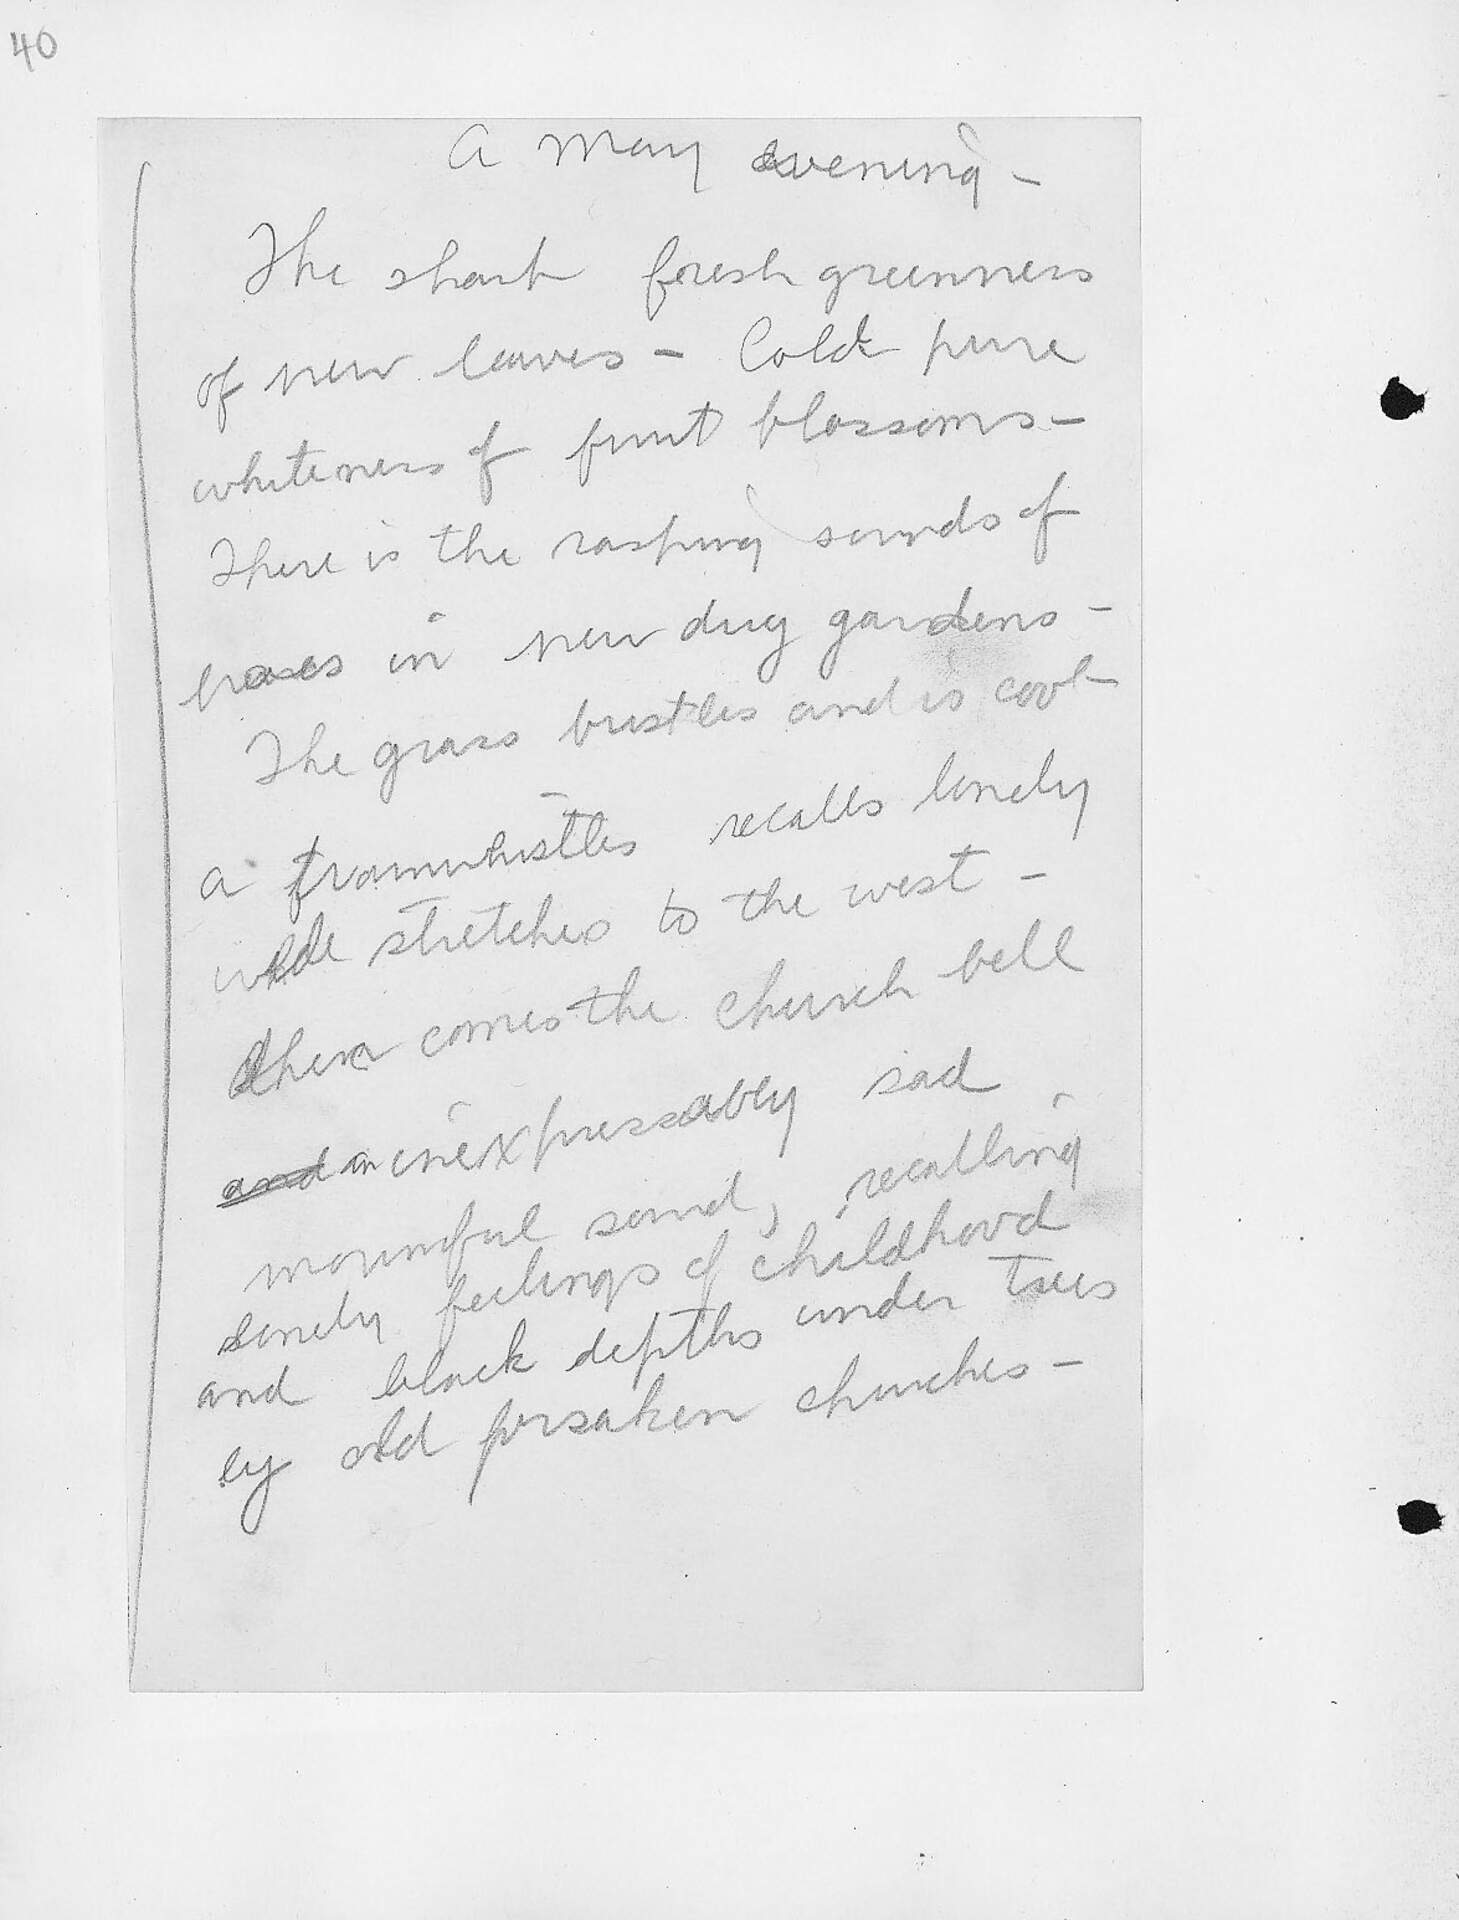 40
A May evening -
The sharp fresh greenness
of new leaves - Cold pure
whiteness of fruit blossoms -
There is the rasping sounds of
in new dug gardens -
The grass bustles and is cool
a trainwhistles recalls lonely
wide stretches to the west -
then comes the church bell
and an inexpressably sad
mournful sound, recalling
lonely feelings of childhood
and black depths under trees
by old forsaken churches -